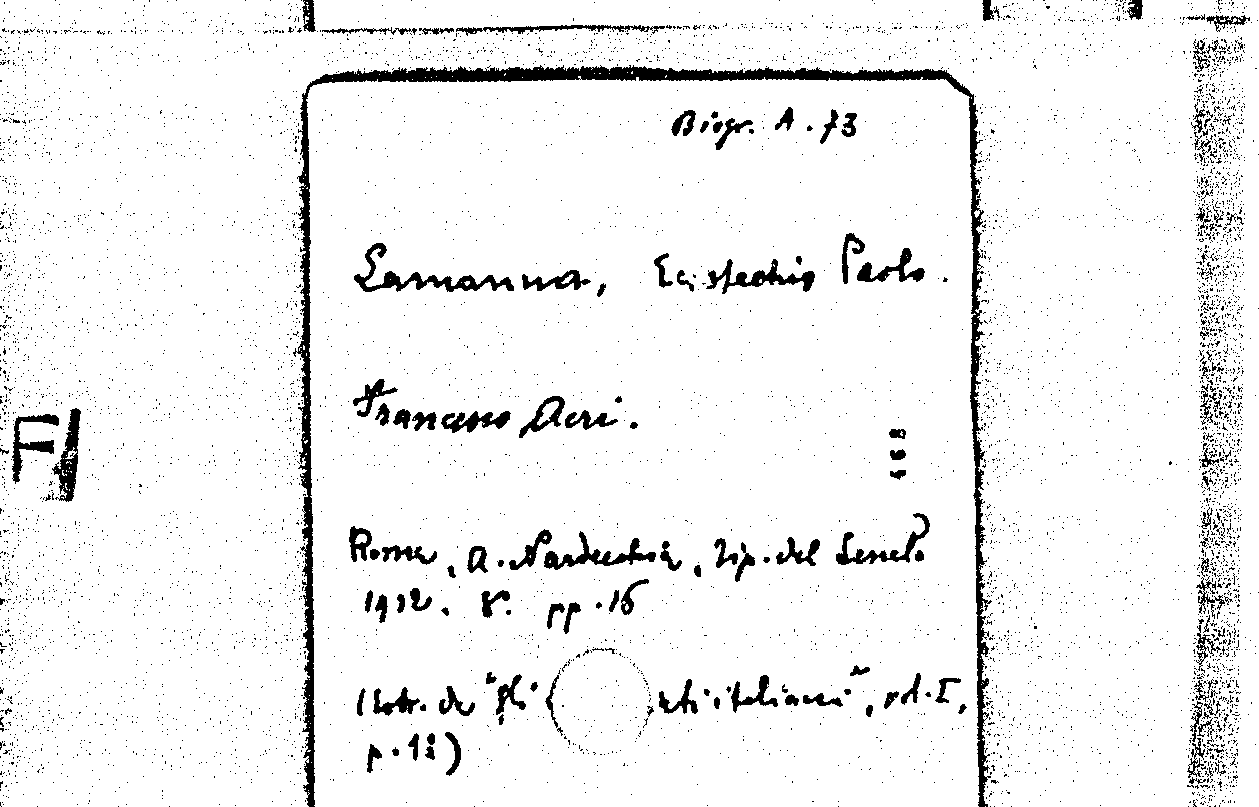 Biogr. A. 73
Lamanna, Eustachio Paolo.
Francesco Acri.
Roma, A. Nardecchia, Tip. del Senato
1912. 8°. pp. 16
(Estr. da "Gli nti italiani", vol. I,
p. 1
F